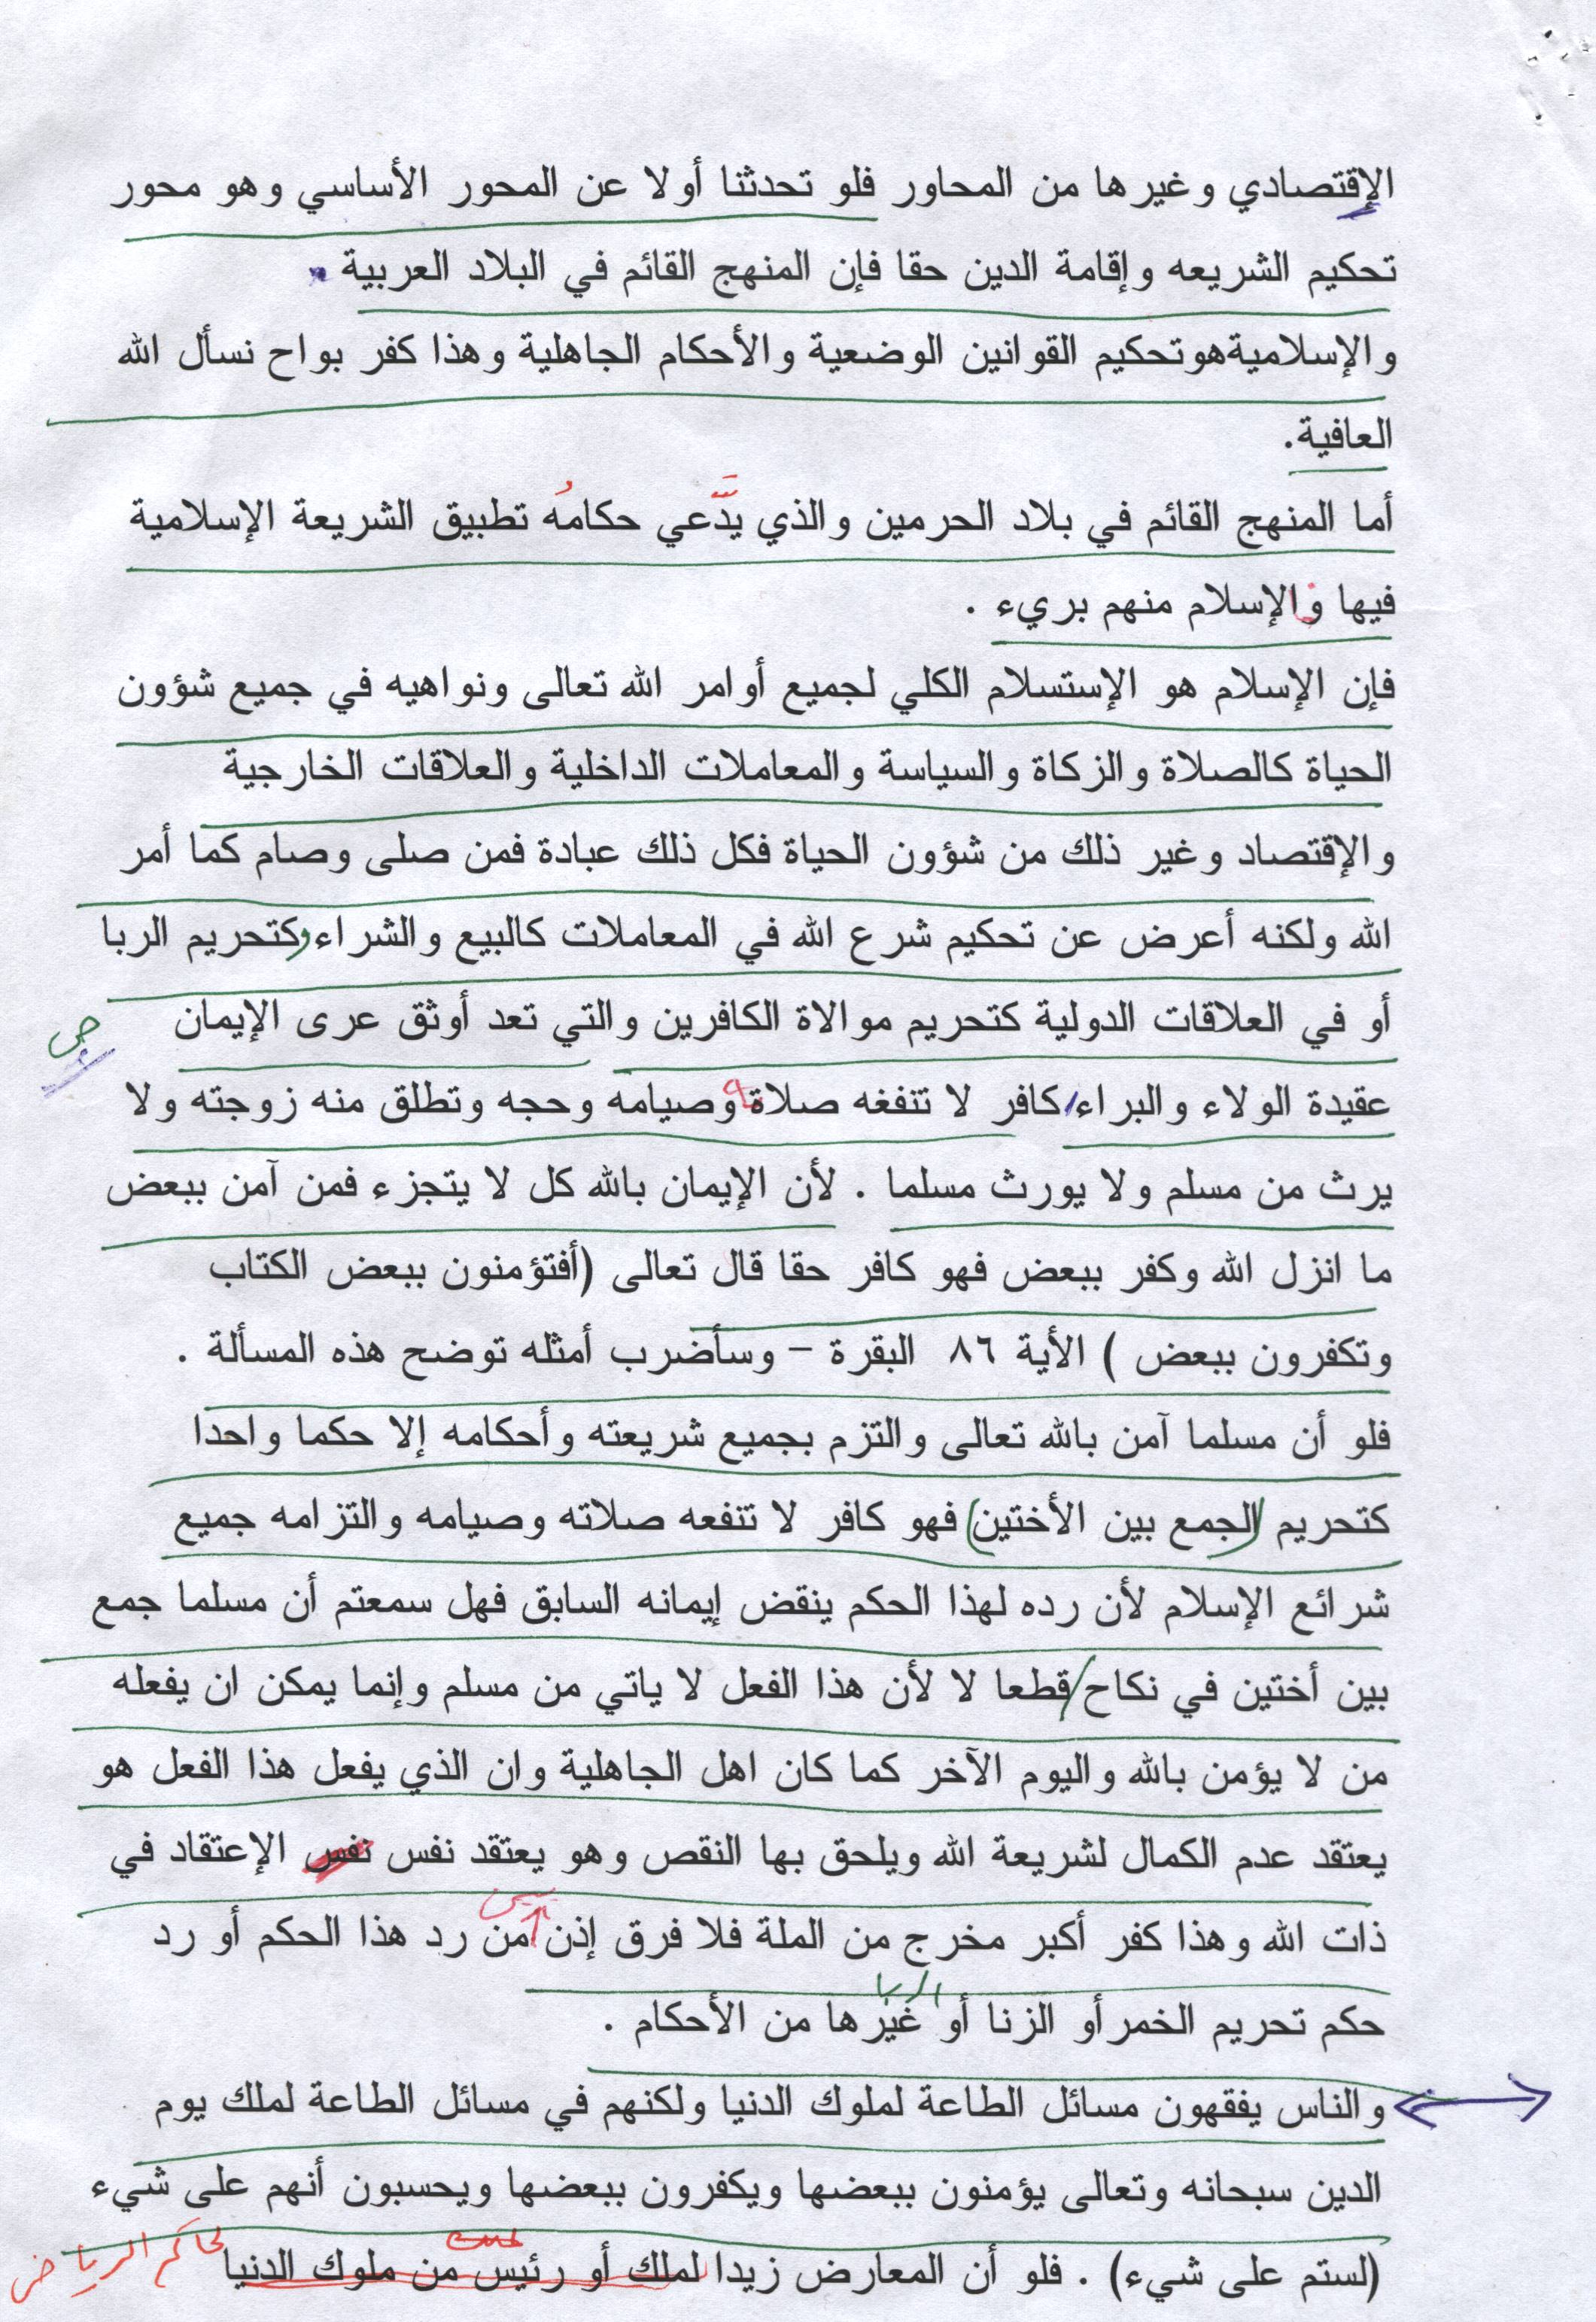 الإقتصادي وغيرها من المحاور فلو تحدثنا أولا عن المحور الأساسي وهو محور
تحكيم الشريعه وإقامة الدين حقا فإن المنهج القائم في البلاد العربية
والإسلاميةهوتحكيم القوانين الوضعية والأحكام الجاهلية وهذا كفر بواح نسأل الله
العافية.
أما المنهج القائم في بلاد الحرمين والذي يدَّعي حكامهُ تطبيق الشريعة الإسلامية
فيها والإسلام منهم بريء .
فإن الإسلام هو الإستسلام الكلي لجميع أوامر الله تعالى ونواهيه في جميع شؤون
الحياة كالصلاة والزكاة والسياسة والمعاملات الداخلية والعلاقات الخارجية
والإقتصاد وغير ذلك من شؤون الحياة فكل ذلك عبادة فمن صلى وصام كما أمر
الله ولكنه أعرض عن تحكيم شرع الله في المعاملات كالبيع والشراء وكتحريم الربا
أو في العلاقات الدولية كتحريم موالاة الكافرين والتي تعد أوثق عرى الإيمان
عقيدة الولاء والبراء كافر لا تنفغه صلاة وصيامه وحجه وتطلق منه زوجته ولا
يرث من مسلم ولا يورث مسلما . لأن الإيمان بالله كل لا يتجزء فمن آمن ببعض
ما انزل الله وكفر ببعض فهو كافر حقا قال تعالى (أفتؤمنون ببعض الكتاب
وتكفرون ببعض ) الأية ٨٦ البقرة – وسأضرب أمثله توضح هذه المسألة .
فلو أن مسلما آمن بالله تعالى والتزم بجميع شريعته وأحكامه إلا حكما واحدا
كتحريم (الجمع بين الأختين) فهو كافر لا تنفعه صلاته وصيامه والتزامه جميع
شرائع الإسلام لأن رده لهذا الحكم ينقض إيمانه السابق فهل سمعتم أن مسلما جمع
بين أختين في نكاح/قطعا لا لأن هذا الفعل لا ياتي من مسلم وإنما يمكن ان يفعله
من لا يؤمن بالله واليوم الآخر كما كان اهل الجاهلية وان الذي يفعل هذا الفعل هو
يعتقد عدم الكمال لشريعة الله ويلحق بها النقص وهو يعتقد نفس نفس الإعتقاد في
بين
ذات الله وهذا كفر أكبر مخرج من الملة فلا فرق إذن من رد هذا الحكم أو رد
الربا
حكم تحريم الخمرأو الزنا أو غيرها من الأحكام .
والناس يفقهون مسائل الطاعة لملوك الدنيا ولكنهم في مسائل الطاعة لملك يوم
الدين سبحانه وتعالى يؤمنون ببعضها ويكفرون ببعضها ويحسبون أنهم على شيء
(لستم على شيء) . فلو أن المعارض زيدا لملك أو رئيس من ملوك الدنيا لحاكم الرياض